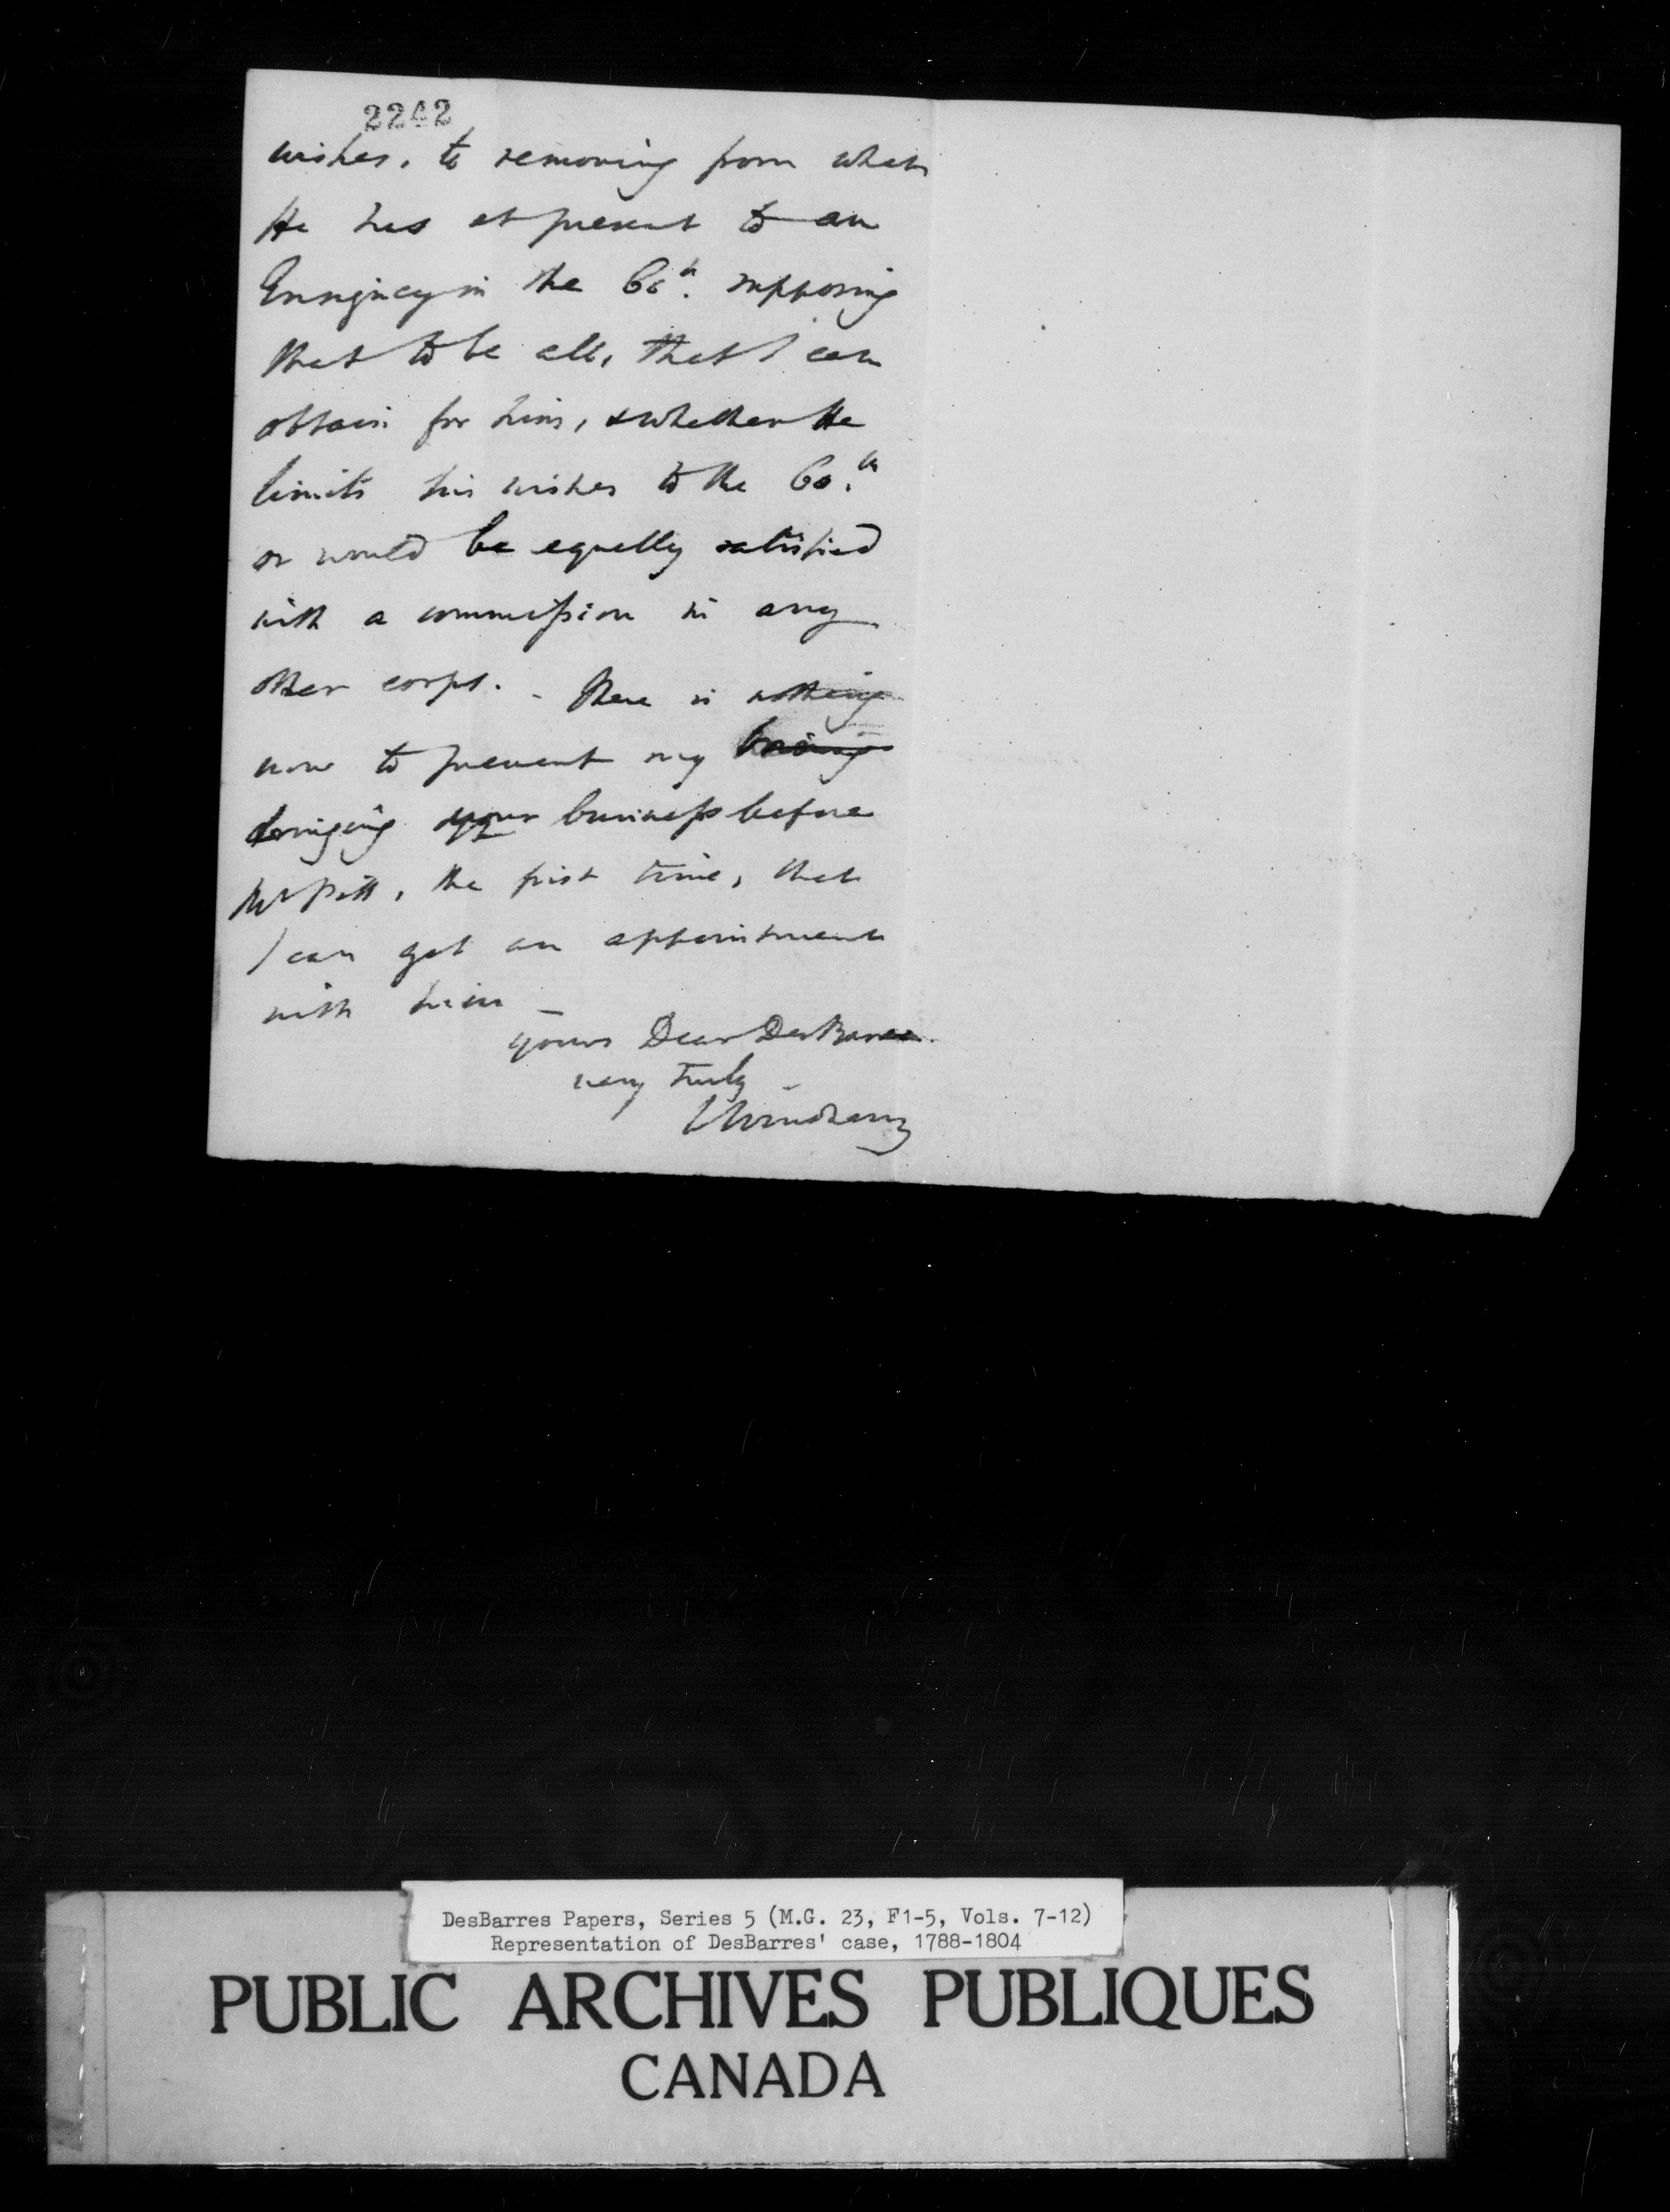 2242
wishes, to removing from what
He has at present to an
Ensigncy in the 60th. supposing
that to be all, that I can
obtain for him, & whether He
limits his wishes to the 60.th
or would be equally satisfied
with a commission in any
other corps. - There is nothing
now to prevent my
bringing your business before
Mr Pitt, the first time, that
I can get an appointment
with him -
yours Dear DesBarres.
very truly -
DesBarres Papers, Series 5 (M.G. 23, F1-5, Vols. 7-12)
Representation of DesBarres' case, 1788-1804
PUBLIC ARCHIVES PUBLIQUES
CANADA